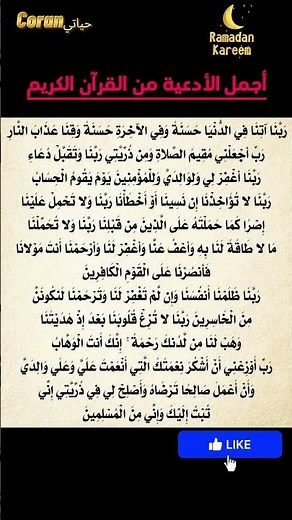 Coran حياتي
Ramadan
Kareem
أجمل الأدعية من القرآن الكريم
رَبَّنَا آتِنَا فِي الدُّنْيَا حَسَنَةً وَفِي الآخِرَةِ حَسَنَةً وَقِنَا عَذَابَ النَّارِ
رَبِّ اجْعَلْنِي مُقِيمَ الصَّلَاةِ وَمِن ذُرِّيَّتِي رَبَّنَا وَتَقَبَّلْ دُعَاءِ
رَبَّنَا اغْفِرْ لِي وَلِوَالِدَيَّ وَلِلْمُؤْمِنِينَ يَوْمَ يَقُومُ الْحِسَابُ
رَبَّنَا لَا تُؤَاخِذْنَا إِن نَّسِينَا أَوْ أَخْطَأْنَا رَبَّنَا وَلَا تَحْمِلْ عَلَيْنَا
إِصْرًا كَمَا حَمَلْتَهُ عَلَى الَّذِينَ مِن قَبْلِنَا رَبَّنَا وَلَا تُحَمِّلْنَا
مَا لَا طَاقَةَ لَنَا بِهِ وَاعْفُ عَنَّا وَاغْفِرْ لَنَا وَارْحَمْنَا أَنتَ مَوْلَانَا
فَانصُرْنَا عَلَى الْقَوْمِ الْكَافِرِينَ
رَبَّنَا ظَلَمْنَا أَنفُسَنَا وَإِن لَّمْ تَغْفِرْ لَنَا وَتَرْحَمْنَا لَنَكُونَنَّ
مِنَ الْخَاسِرِينَ رَبَّنَا لَا تُزِغْ قُلُوبَنَا بَعْدَ إِذْ هَدَيْتَنَا
وَهَبْ لَنَا مِن لَّدُنكَ رَحْمَةً ۚ إِنَّكَ أَنتَ الْوَهَّابُ
رَبِّ أَوْزِعْنِي أَنْ أَشْكُرَ نِعْمَتَكَ الَّتِي أَنْعَمْتَ عَلَيَّ وَعَلَى وَالِدَيَّ
وَأَنْ أَعْمَلَ صَالِحًا تَرْضَاهُ وَأَصْلِحْ لِي فِي ذُرِّيَّتِي إِنِّي
تُبْتُ إِلَيْكَ وَإِنِّي مِنَ الْمُسْلِمِينَ
LIKE